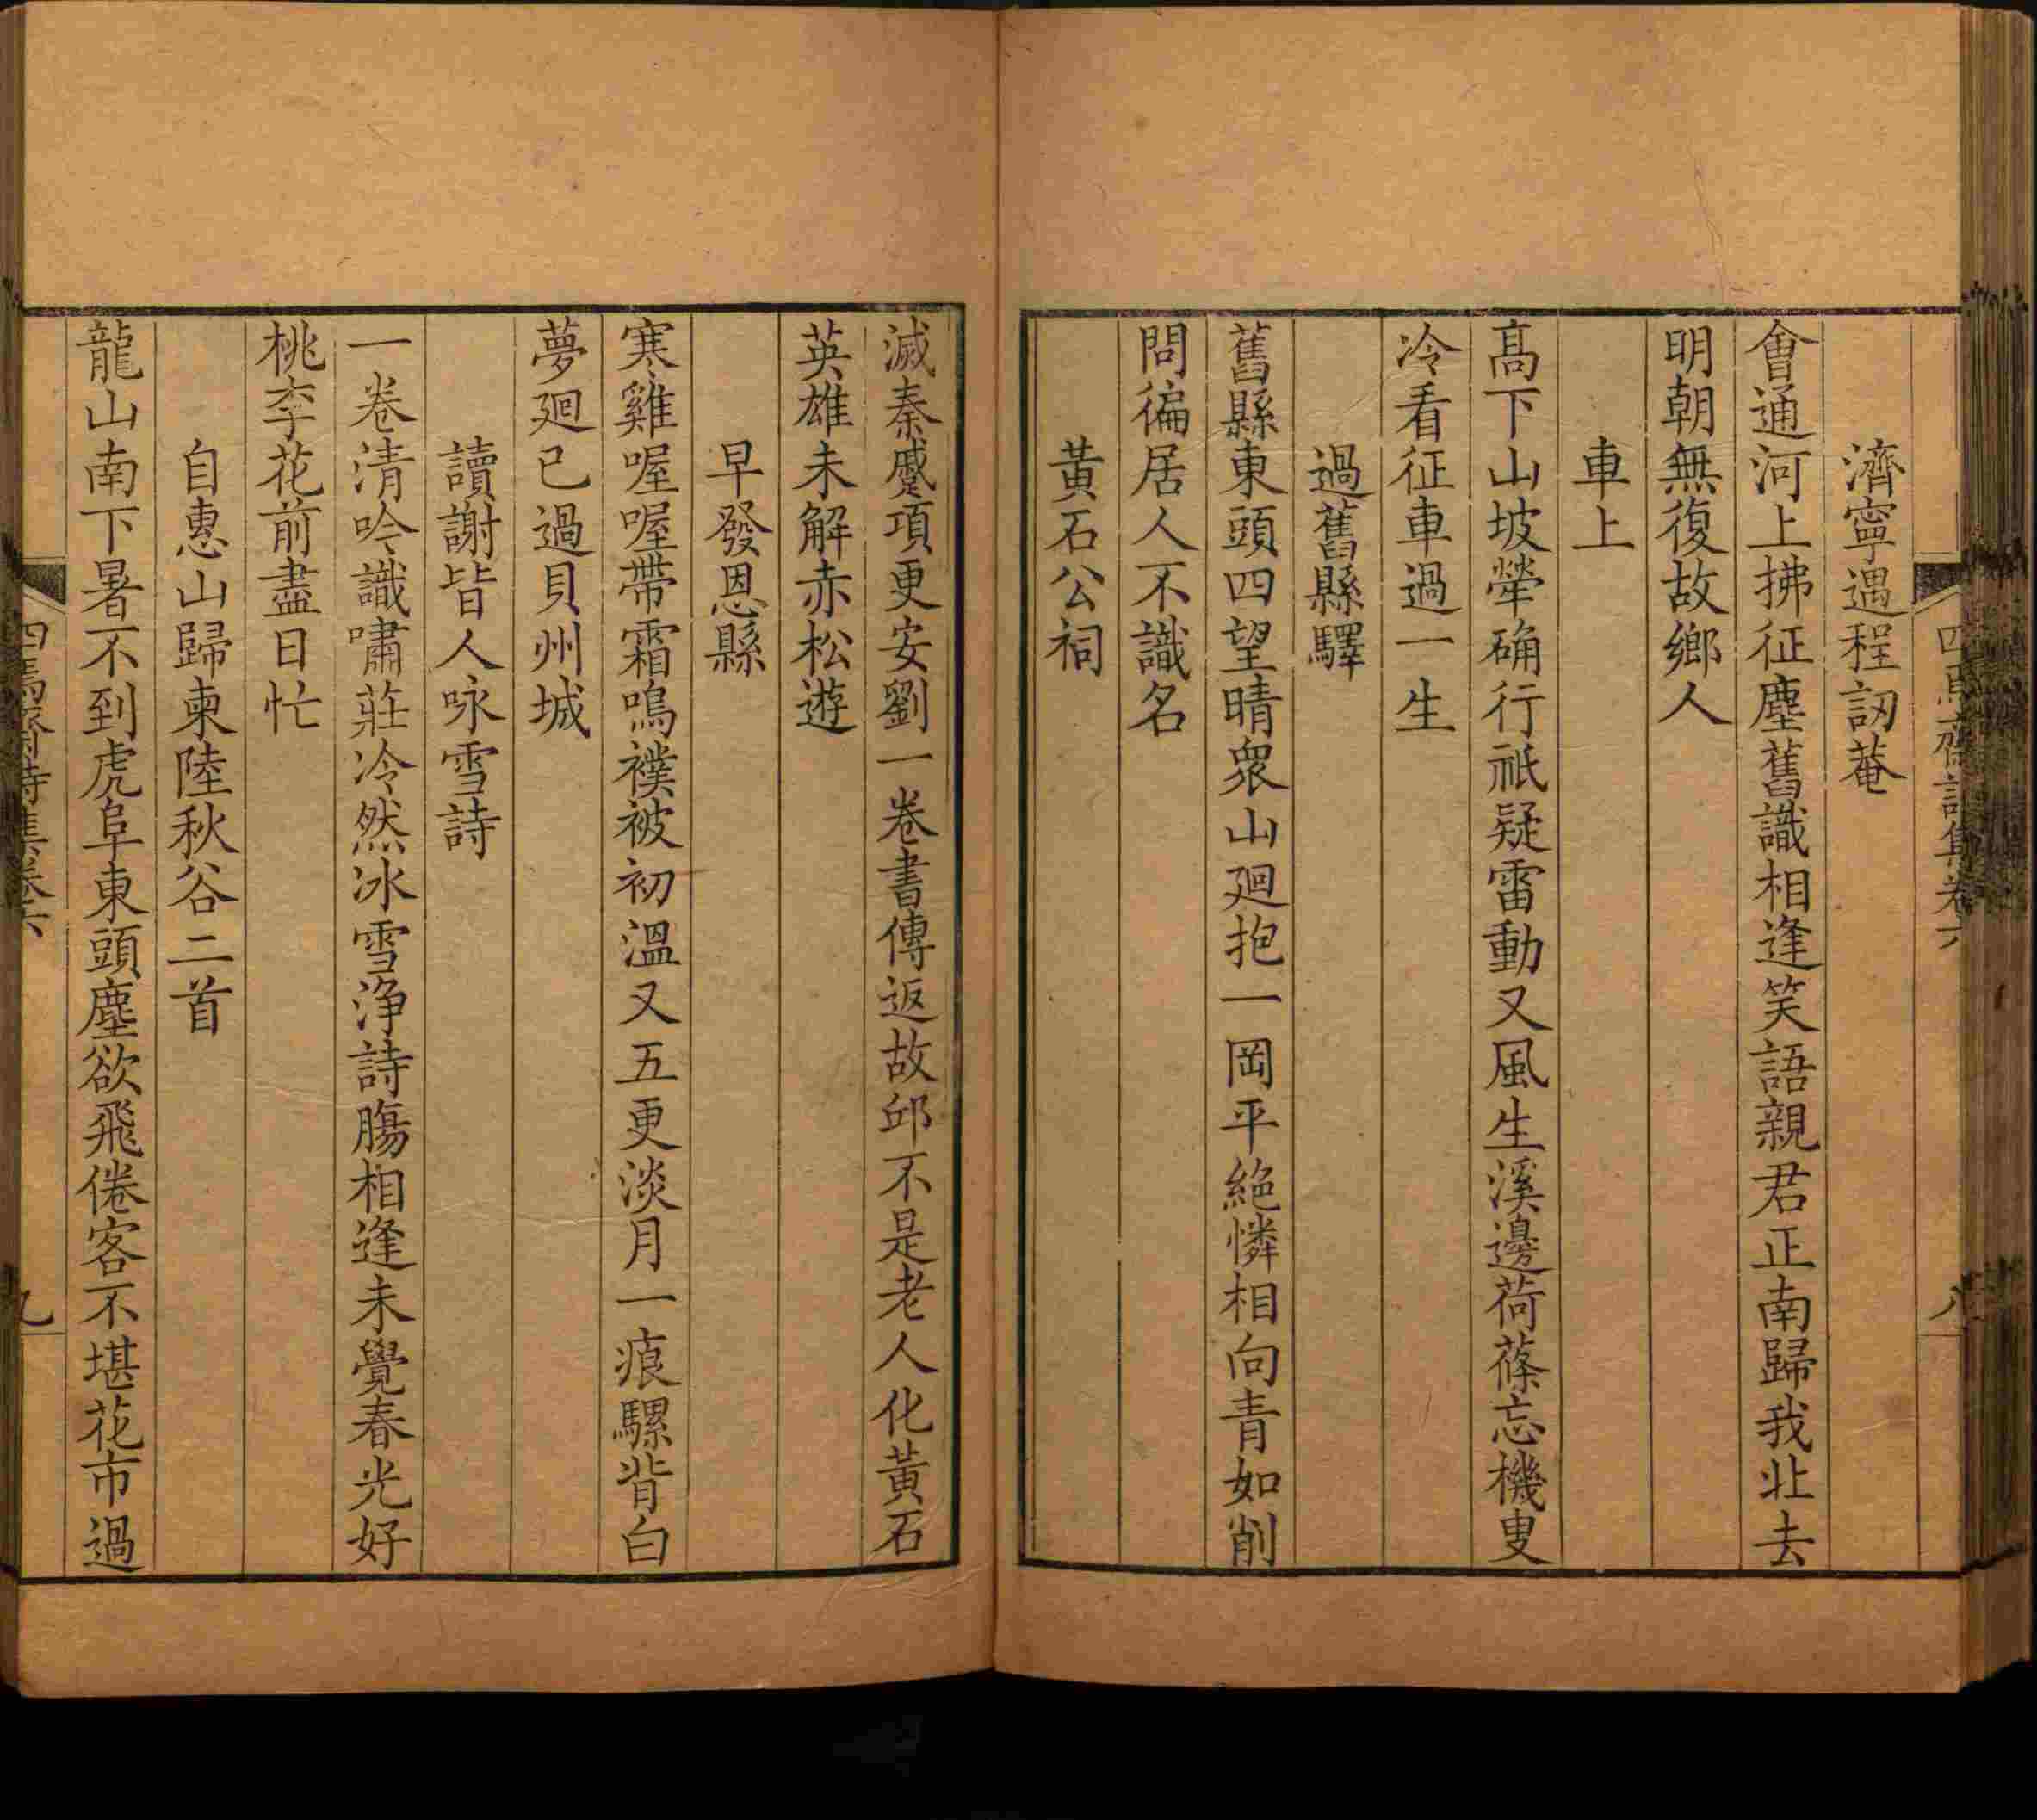 濟寧遇程訒菴
會通河上拂征塵舊識相逢笑語親君正南歸我北去
明朝無復故鄉人
車上
高下山坡犖确行祇疑雷動又風生溪邊荷蓧忘機叟
冷看征車過一生
過舊縣驛
舊縣東頭四望晴衆山廻抱一岡平絕憐相向青如削
問徧居人不識名
黃石公祠
滅秦蹙項更安劉一卷書傳返故邱不是老人化黃石
英雄未解赤松遊
早發恩縣
寒雞喔喔帶霜鳴襆被初溫又五更淡月一痕騾背白
夢廻已過貝州城
讀謝皆人咏雪詩
一卷清吟識嘯莊冷然冰雪淨詩腸相逢未覺春光好
桃李花前盡日忙
自惠山歸柬陸秋谷二首
龍山南下暑不到虎阜東頭塵欲飛倦客不堪花市過